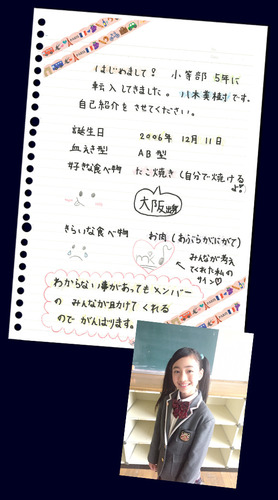 はじめまして! 小等部 5年に
転入してきました。八木美樹です。
自己紹介をさせてください。
誕生日 2006年 12月 11日
血えき型 AB型
好きな食べ物 たこ焼き(自分で焼けるよ!!)
大阪出身
きらいな食べ物 お肉(あぶらがにがて)
みんなが考え
てくれた私の
サイン♡
わからない事があってもメンバー
の みんなが助けて くれる
ので がんばります。